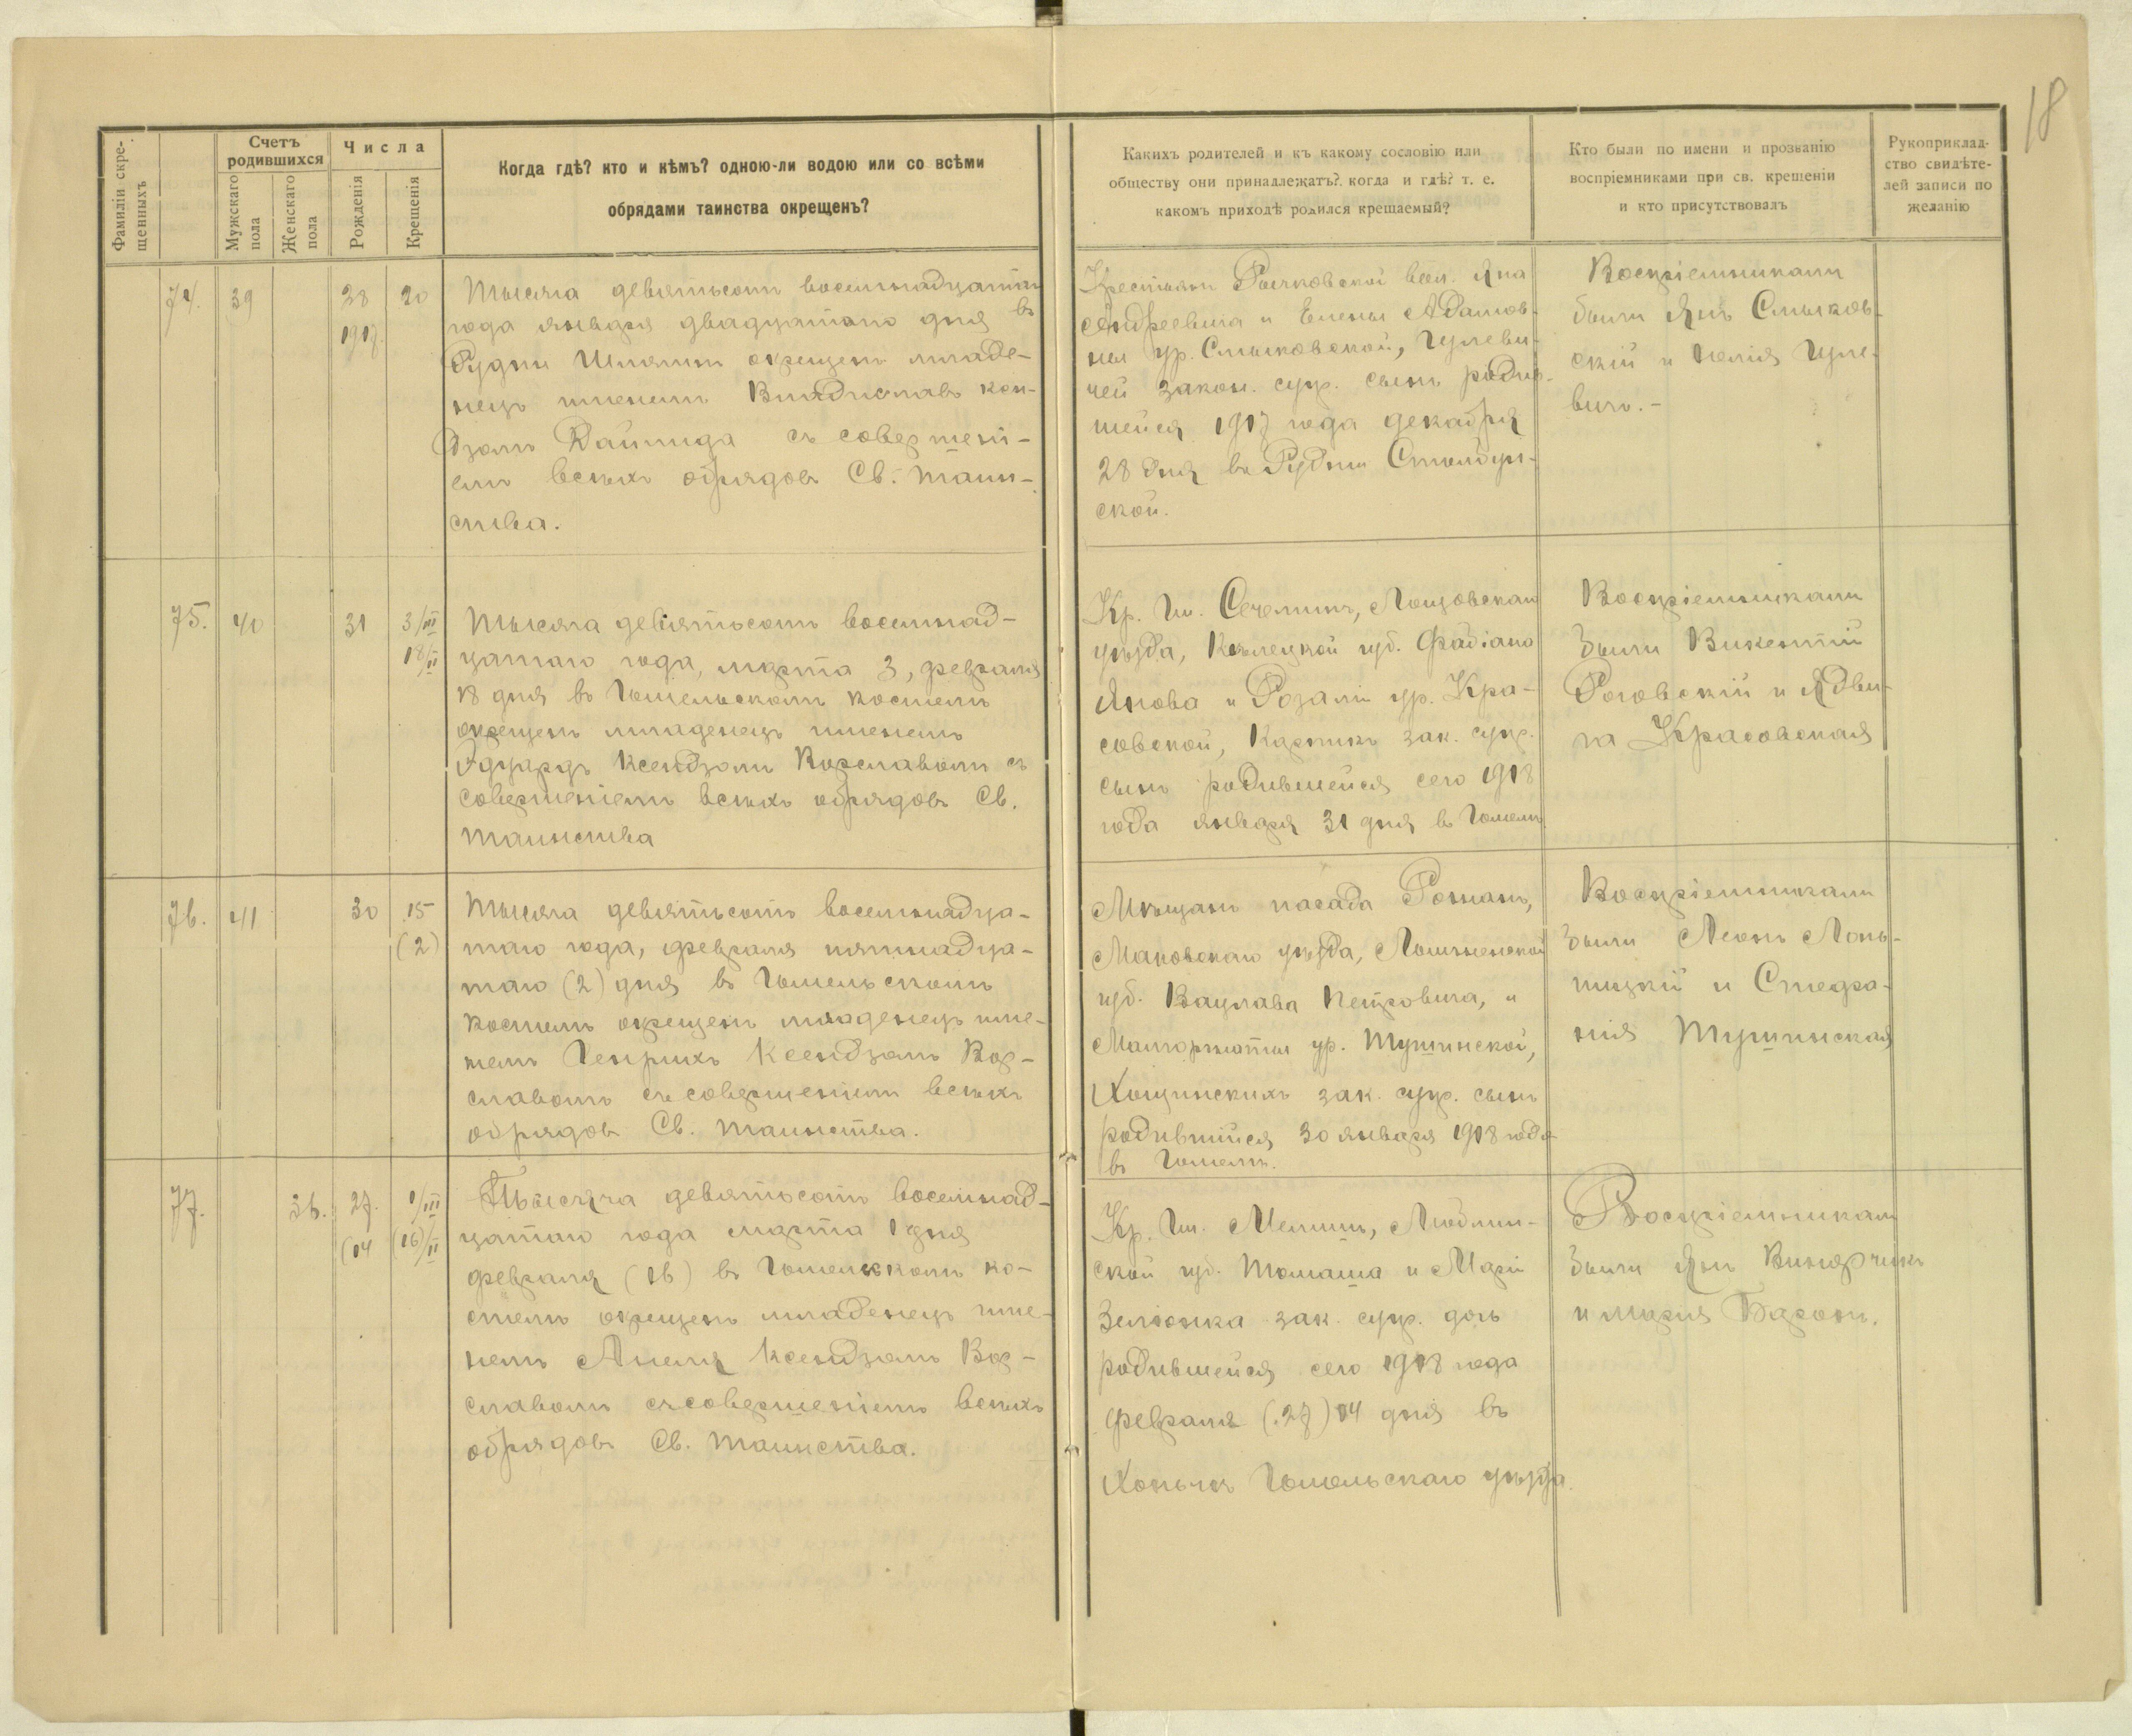 18
Фамиліи скре-
щенныхъ
Счетъ
родившихся
Мужскаго
пола
Женскаго
пола
Числа
Рожденія
Крещенія
Когда гдѣ? кто и кѣмъ? одною-ли водою или со всѣми
обрядами таинства окрещенъ?
Какихъ родителей и къ какому сословію или
обществу они принадлежатъ? когда и гдѣ? т. е.
какомъ приходѣ родился крещаемый?
Кто были по имени и прозванію
воспріемниками при св. крещеніи
и кто присутствовалъ
Рукоприклад-
ство свидѣте-
лей записи по
желанію
74.
39
28
1917.
20
Тысяча девятьсотъ восемнадцатаго
года января двадцатаго дня въ
Рудни Шлягинъ окрещенъ младе-
нецъ именемъ Владиславъ ксен-
дзомъ съ совершені-
емъ всѣхъ обрядовъ Св. Таин-
ства.
Крестьянъ вол. Яна
Андреевича и Елены Адамов-
ны ур. Смыковской, Гулеви-
чей закон. супр. сынъ родив-
шейся 1917 года декабря
28 дня въ Рудни Столбун-
ской.
Воспріемниками
были Янъ Смыков-
скій и Юлія Гуле-
вичъ.-
75.
40
31
3/III
18/II
Тысяча девятьсотъ восемнад-
цатаго года, марта 3, февраля
18 дня въ Гомельскомъ костелѣ
окрещенъ младенецъ именемъ
Эдуардъ Ксендзомъ Ворславомъ съ
совершеніемъ всѣхъ обрядовъ Св.
Таинства
Кр. Гм. Сечеминъ, Лощовскаго
уѣзда, Кѣлецкой губ. Фабіана
Янова и Розаліи ур. Кра-
совской, Карпикъ зак. супр.
сынъ родившейся сего 1918
года января 31 дня въ Гомелѣ
Воспріемниками
были Викентій
Роговскій и Ядви-
га Красовская
76.
41
30
15
(2)
Тысяча девятьсотъ восемнадца-
таго года, февраля пятнадца-
таго (2) дня въ Гомельскомъ
костелѣ окрещенъ младенецъ име-
немъ Генрихъ Ксендзомъ Вор-
славомъ съ совершеніемъ всѣхъ
обрядовъ Св. Таинства.
Мѣщанъ пасада Рожанъ,
Маковскаго уѣзда, Ломжинской
губ. Вацлава Петровича, и
Малгоржаты ур. Тушинской,
Хощинскихъ зак. супр. сынъ
родившійся 30 января 1918 года
въ Гомелѣ.
Воспріемниками
были Леонъ Лопь-
тицкій и Стефа-
нія Тушинская
77.
36.
27.
(14
1/III
(16)/II
Тысяча девятьсотъ восемнад-
цатаго года марта 1 дня
февраля (16) въ Гомельскомъ ко-
стелѣ окрещенъ младенецъ име-
немъ Анеля Ксендзомъ Вор-
славомъ съ совершеніемъ всѣхъ
обрядовъ Св. Таинства.
Кр. Гм. Люблин-
ской губ. Томаша и Маріи
Зелюнка зак. супр. дочь
родившейся сего 1918 года
февраля (27) 14 дня въ
Гомельскаго уѣзда.
Воспріемникам
были Янъ Винярчикъ
и Марія Баронъ.